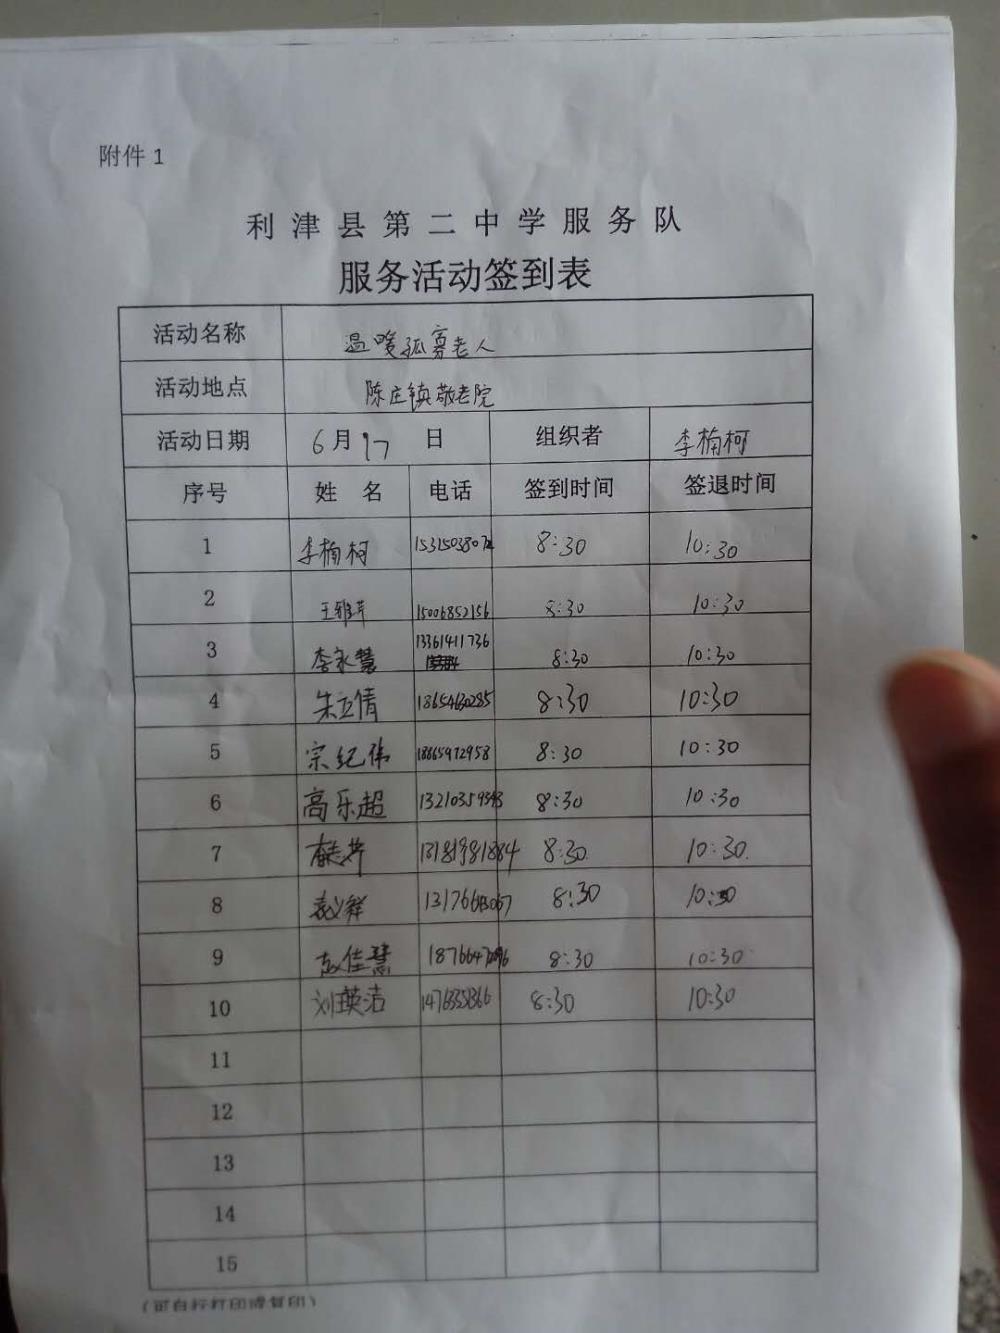 附件 1
利津县第二中学服务队
服务活动签到表
活动名称 温暖孤寡老人
活动地点 陈庄镇敬老院
活动日期 6月17日 组织者 李楠柯
序号 姓名 电话 签到时间 签退时间
1 李楠柯 8:30 10:30
2 王雅芹 15006852156 8:30 10:30
3 李永慧 13361411736 8:30 10:30
4 朱立倩 18654630285 8:30 10:30
5 宗纪伟 18865972958 8:30 10:30
6 高乐超 8:30 10:30
7 8:30 10:30
8 袁义群 8:30 10:30
9 赵佳慧 8:30 10:30
10 刘瑛洁 8:30 10:30
11
12
13
14
15
(可自行打印或复印)